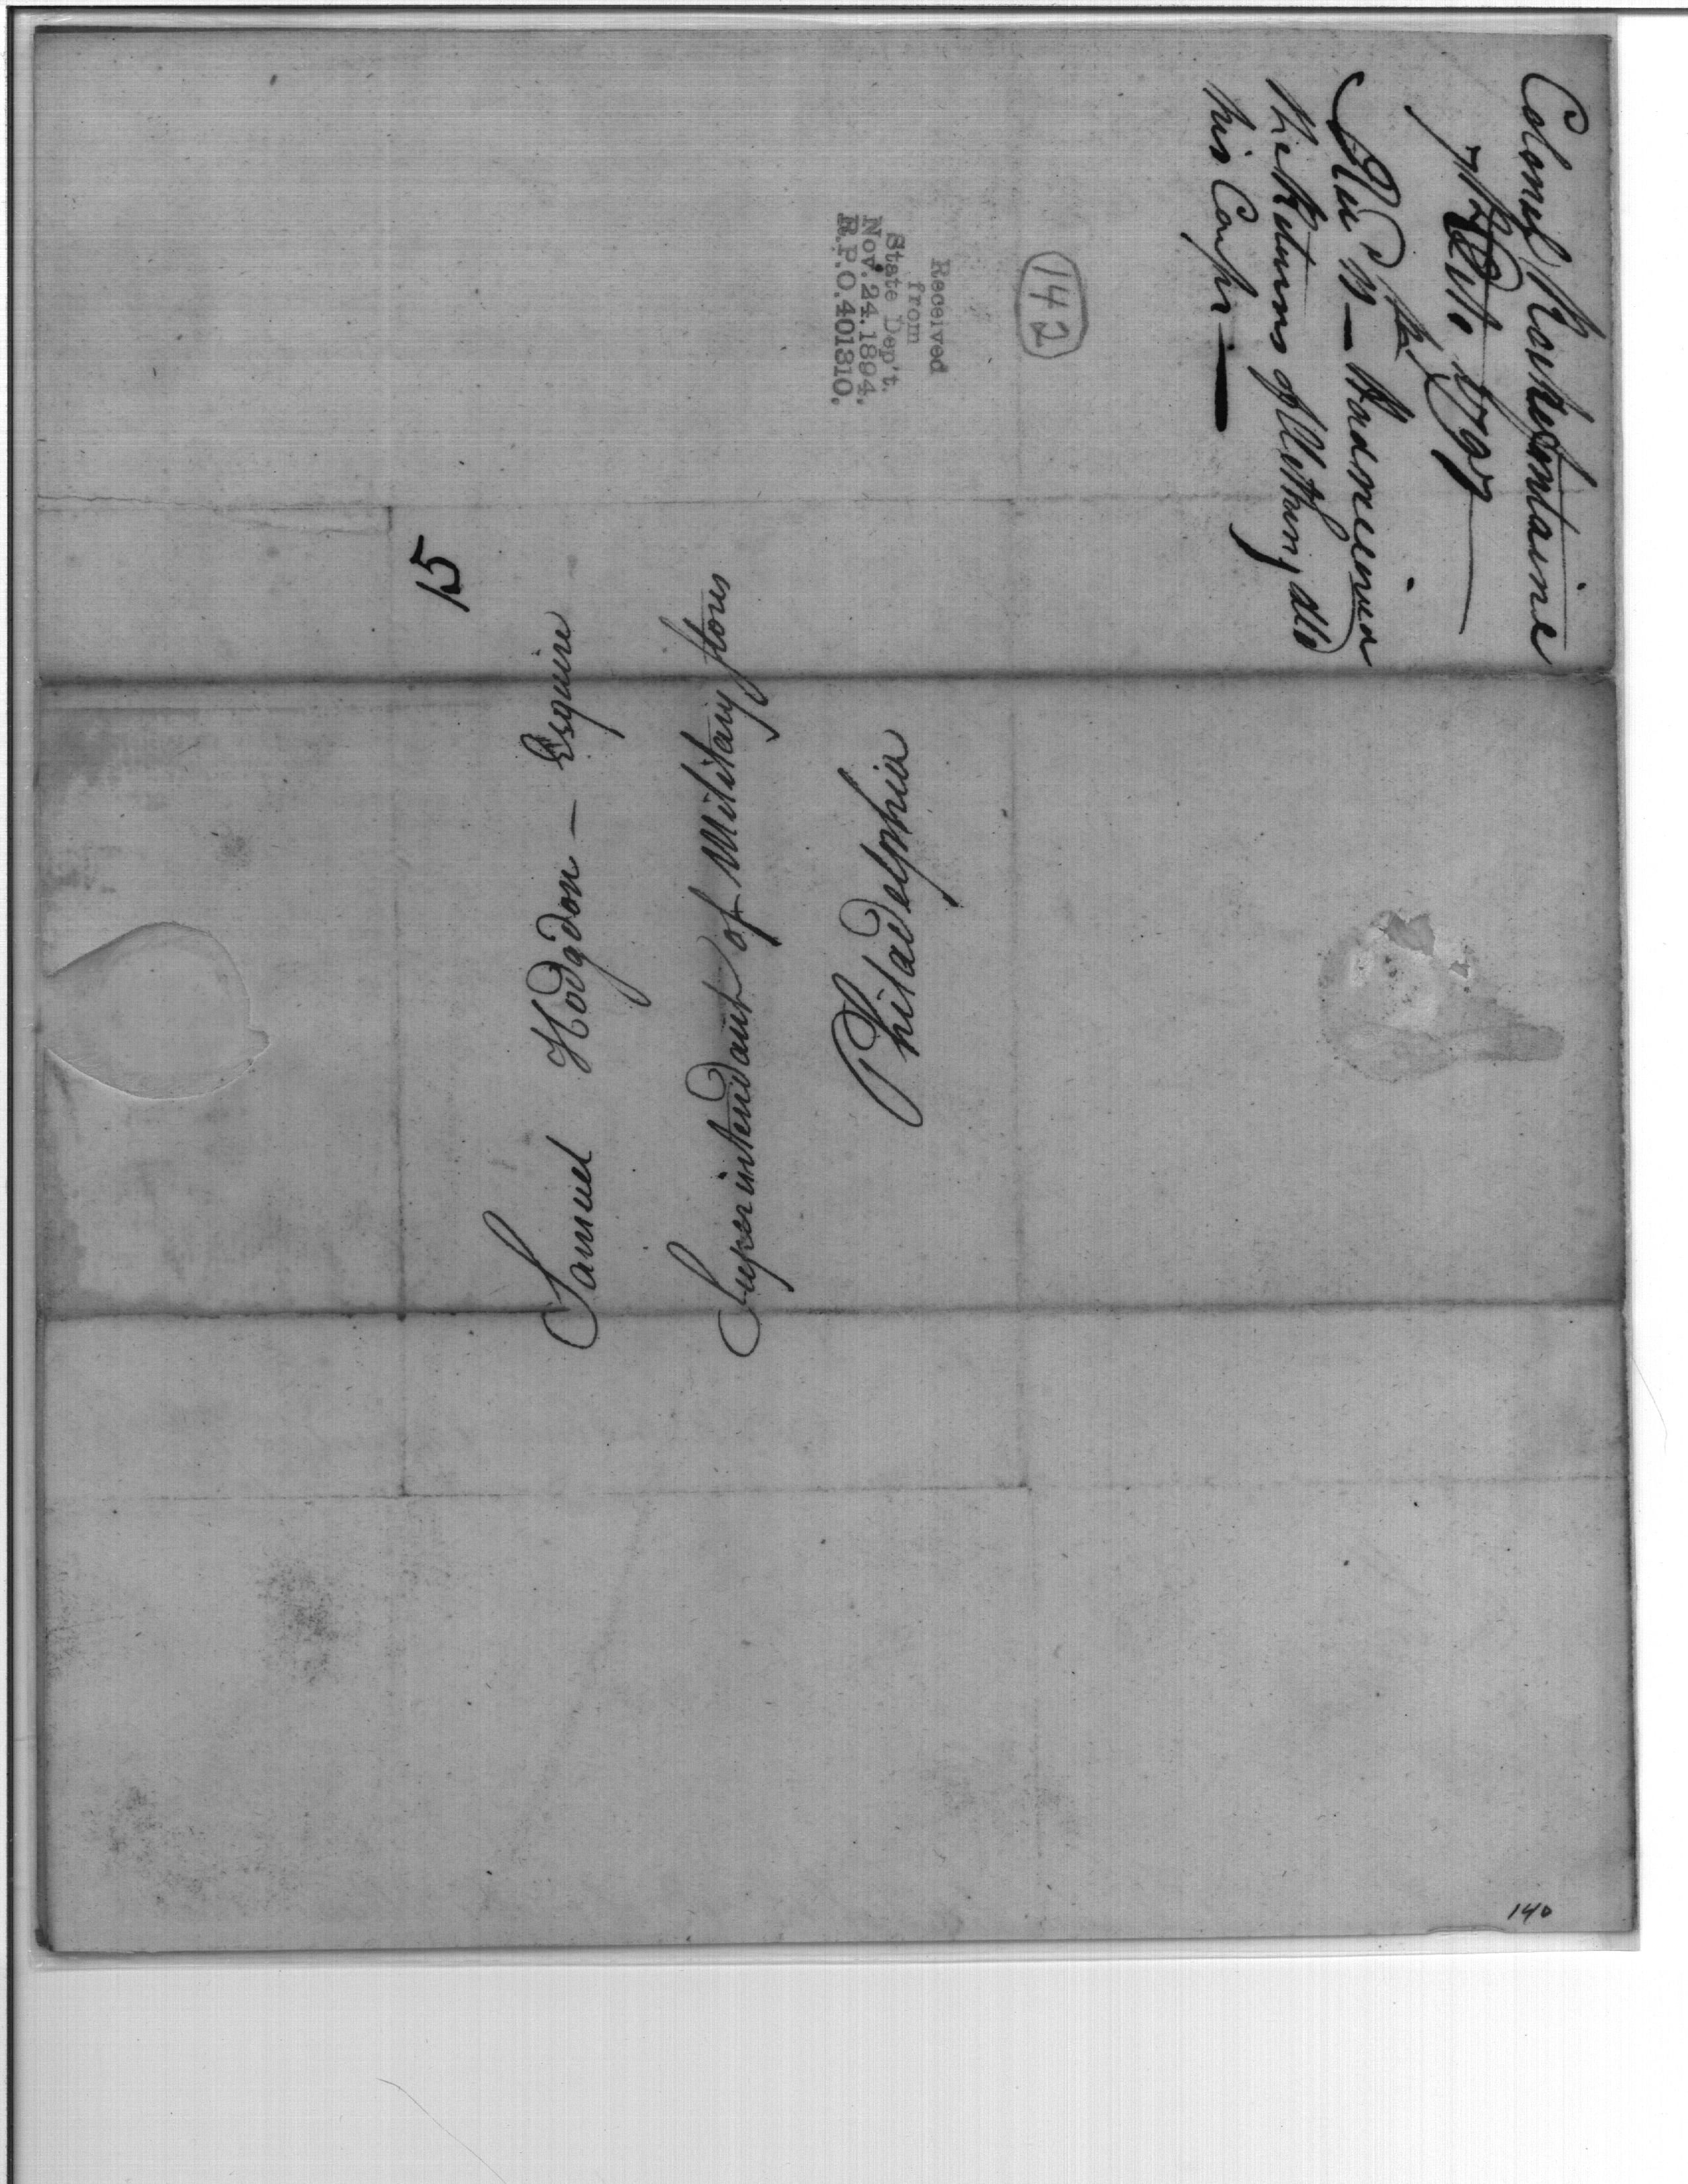 Colonel Rochefontaine
7th 1797
Rec'd
the Returns of Clothing all
his Corps —
142
Received
from
State Dep't.
Nov. 24. 1894.
R.P.O. 401310.
15
Samuel Hodgdon — Esquire
Superintendant of Military stores
Philadelphia
140